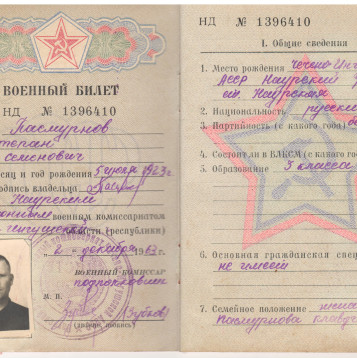 ВОЕННЫЙ БИЛЕТ
НД № 1396410
Пасмурнов
Степан
Семонович
месяц и год рождения 5 июля 1923 г.
подпись владельца
Наурским
районным военным комиссариатом
(республики)
2 декабря
ВОЕННЫЙ КОМИССАР
подполковник
М. П.
Зубков
НД № 1396410
I. Общие сведения
1. Место рождения Чечено Инг
АССР Наурский р
ст. Наурская
2. Национальность русский
3. Партийность (с какого года)
4. Состоит ли в ВЛКСМ (с какого года
5. Образование 5 класса
6. Основная гражданская спец
не имеет
7. Семейное положение жена
Пасмурнова